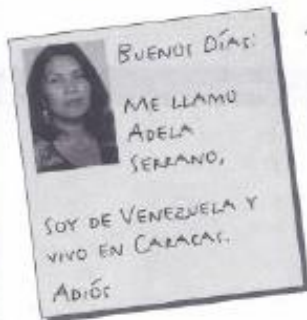 BUENOS DÍAS:
ME LLAMO
ADELA
SERRANO,
SOY DE VENEZUELA Y
VIVO EN CARACAS.
ADIÓS